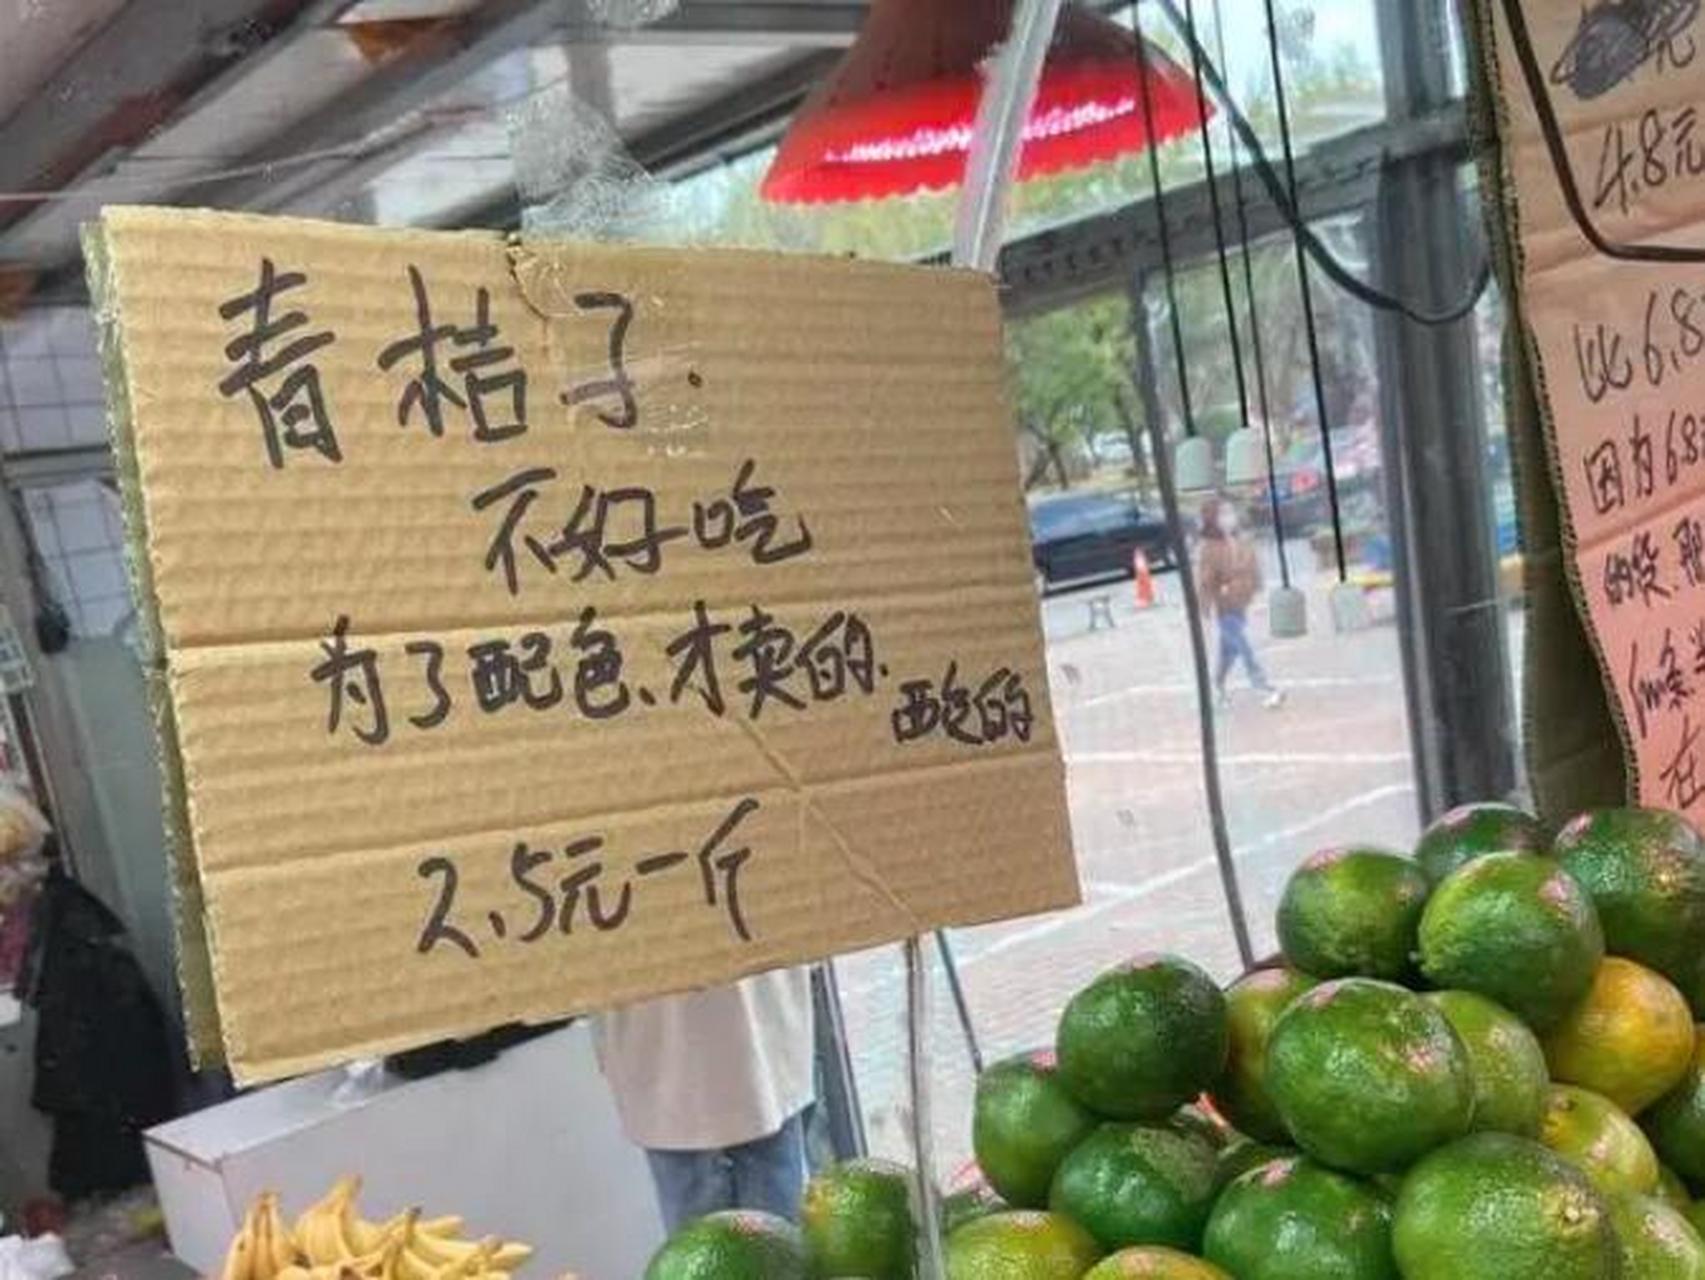 青桔子.
不好吃
为了配色、才卖的.
酸的
2.5元一斤
元
4.8元
比6.8
因为6.8
的货.
在